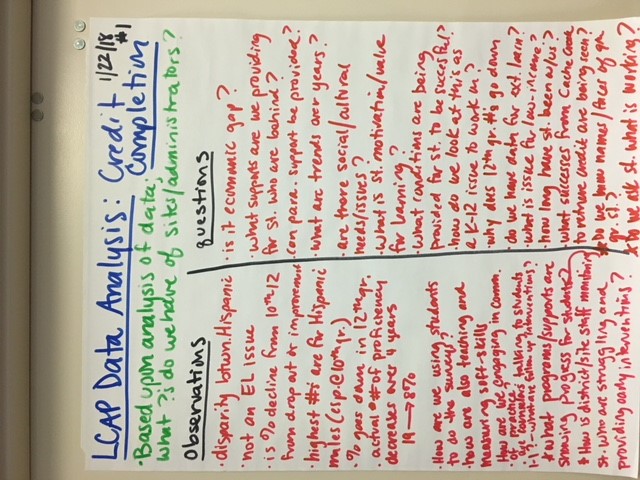 LCAP Data Analysis: Credit 1/22/18
Completion #1
• Based upon analysis of data,
what ?'s do we have of sites/administrators?
Observations
• disparity btwn. Hispanic
• not an EL issue
• is % decline from 10th-12
from drop out or improvement
• highest #'s are for Hispanic
male (esp. @ 10th gr.)
• % goes down in 12th gr.
• actual # of proficiency
decreases over 4 years
19 → 8%
• How are we using students
to do the survey?
• how are also teaching and
measuring soft-skills
• How are we engaging in comm.
of practice
• are counselors talking to students
1-1? - what are follow up interventions?
* what programs/supports are
showing progress for students?
* How is district/site staff monitoring
st. who are struggling and
providing early interventions?
Questions
• is it economic gap?
• what supports are we providing
for st. who are behind?
• can para. support be provided?
• what are trends over years?
• are there social/cultural
needs/issues?
• what is st. motivation/value
for learning?
• what conditions are being
provided for st. to be successful?
• how do we look at this as
a K-12 issue to work on?
• why does 12th gr. #'s go down
• do we have data for ext. learn?
• what is issue for low-income?
• how long have st. been w/us?
• what successes from Cache Creek
to retrieve credit are being seen?
* Do we know names/faces of 9th
gr. st.?
* Do we ask st. what is working?